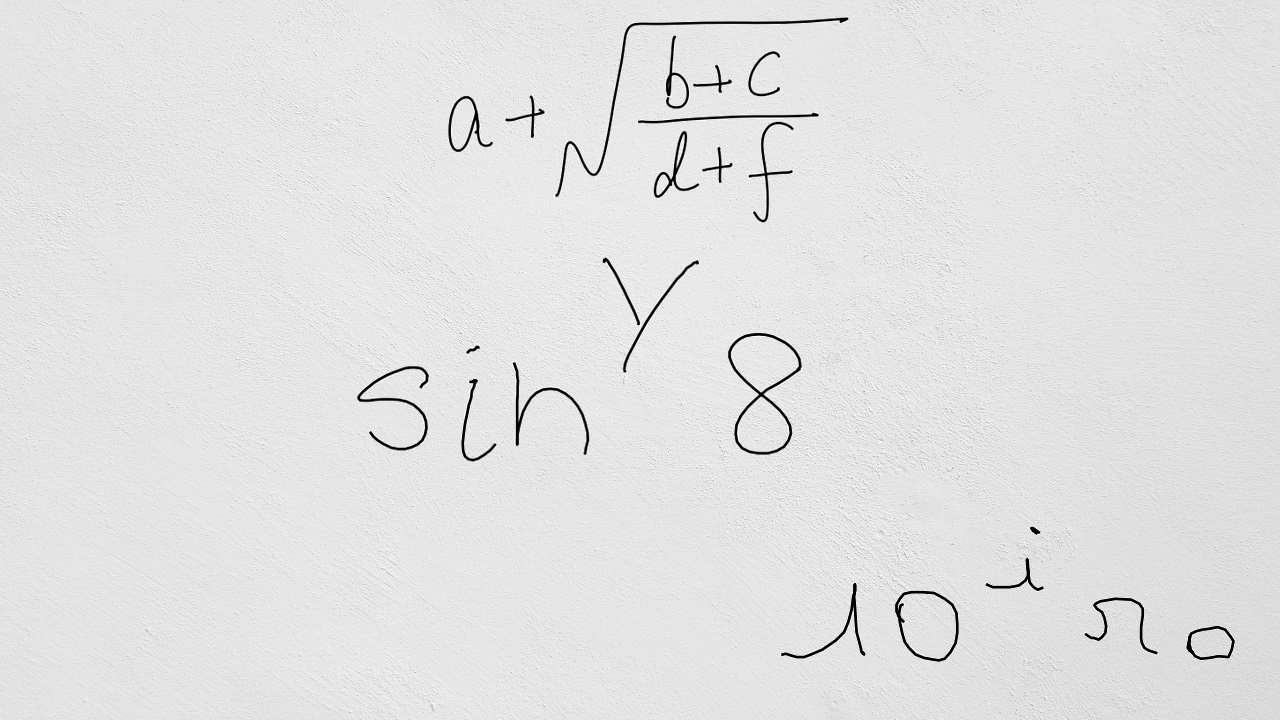 a + \sqrt{\frac{b+c}{d+f}}
\sin^{y} 8
10^{i} r_{0}